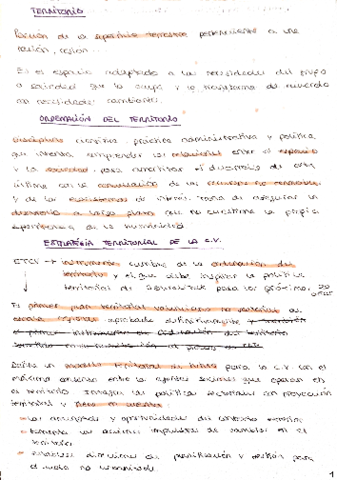 TERRITORIO
Porción de la superficie terrestre perteneciente a una
nación, región...
Es el espacio adaptado a las necesidades del grupo
o sociedad que lo ocupa y lo transforma de acuerdo
a sus necesidades cambiantes.
ORDENACIÓN DEL TERRITORIO
Disciplina científica, práctica administrativa y política
que intenta comprender las relaciones entre el espacio
y la sociedad para el desarrollo de esta
última con la conservación de los recursos no renovables
y de los ecosistemas de asegurar un
desarrollo a largo plazo que no cuestione la propia
supervivencia de la humanidad
ESTRATEGIA TERRITORIAL DE LA C.V.
ETCV → Instrumento de la ordenación del
territorio y el que debe inspirar la política
territorial de para los próximos 20
años
Es primer plan territorial
escala regional aprobado definitivamente
Define un modelo territorial de futuro para la C.V. con el
máximo consenso entre los agentes sociales que operan en
el territorio. las políticas sectoriales con proyección
territorial y tiene en cuenta:
- las y oportunidades del contexto
- las acciones impulsoras de cambios en el
territorio
- establecer directrices de planificación y gestión para
el suelo no urbanizable
1